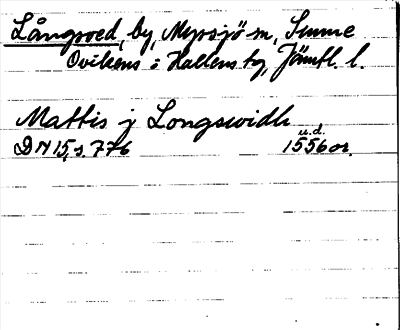 Långsved, by, Myrsjö m, Sunne
Ovikens o Hallens tg, Jämtl. l.
Mattis j Longswidh
u.d.
DN 15, s. 776 1556 or.